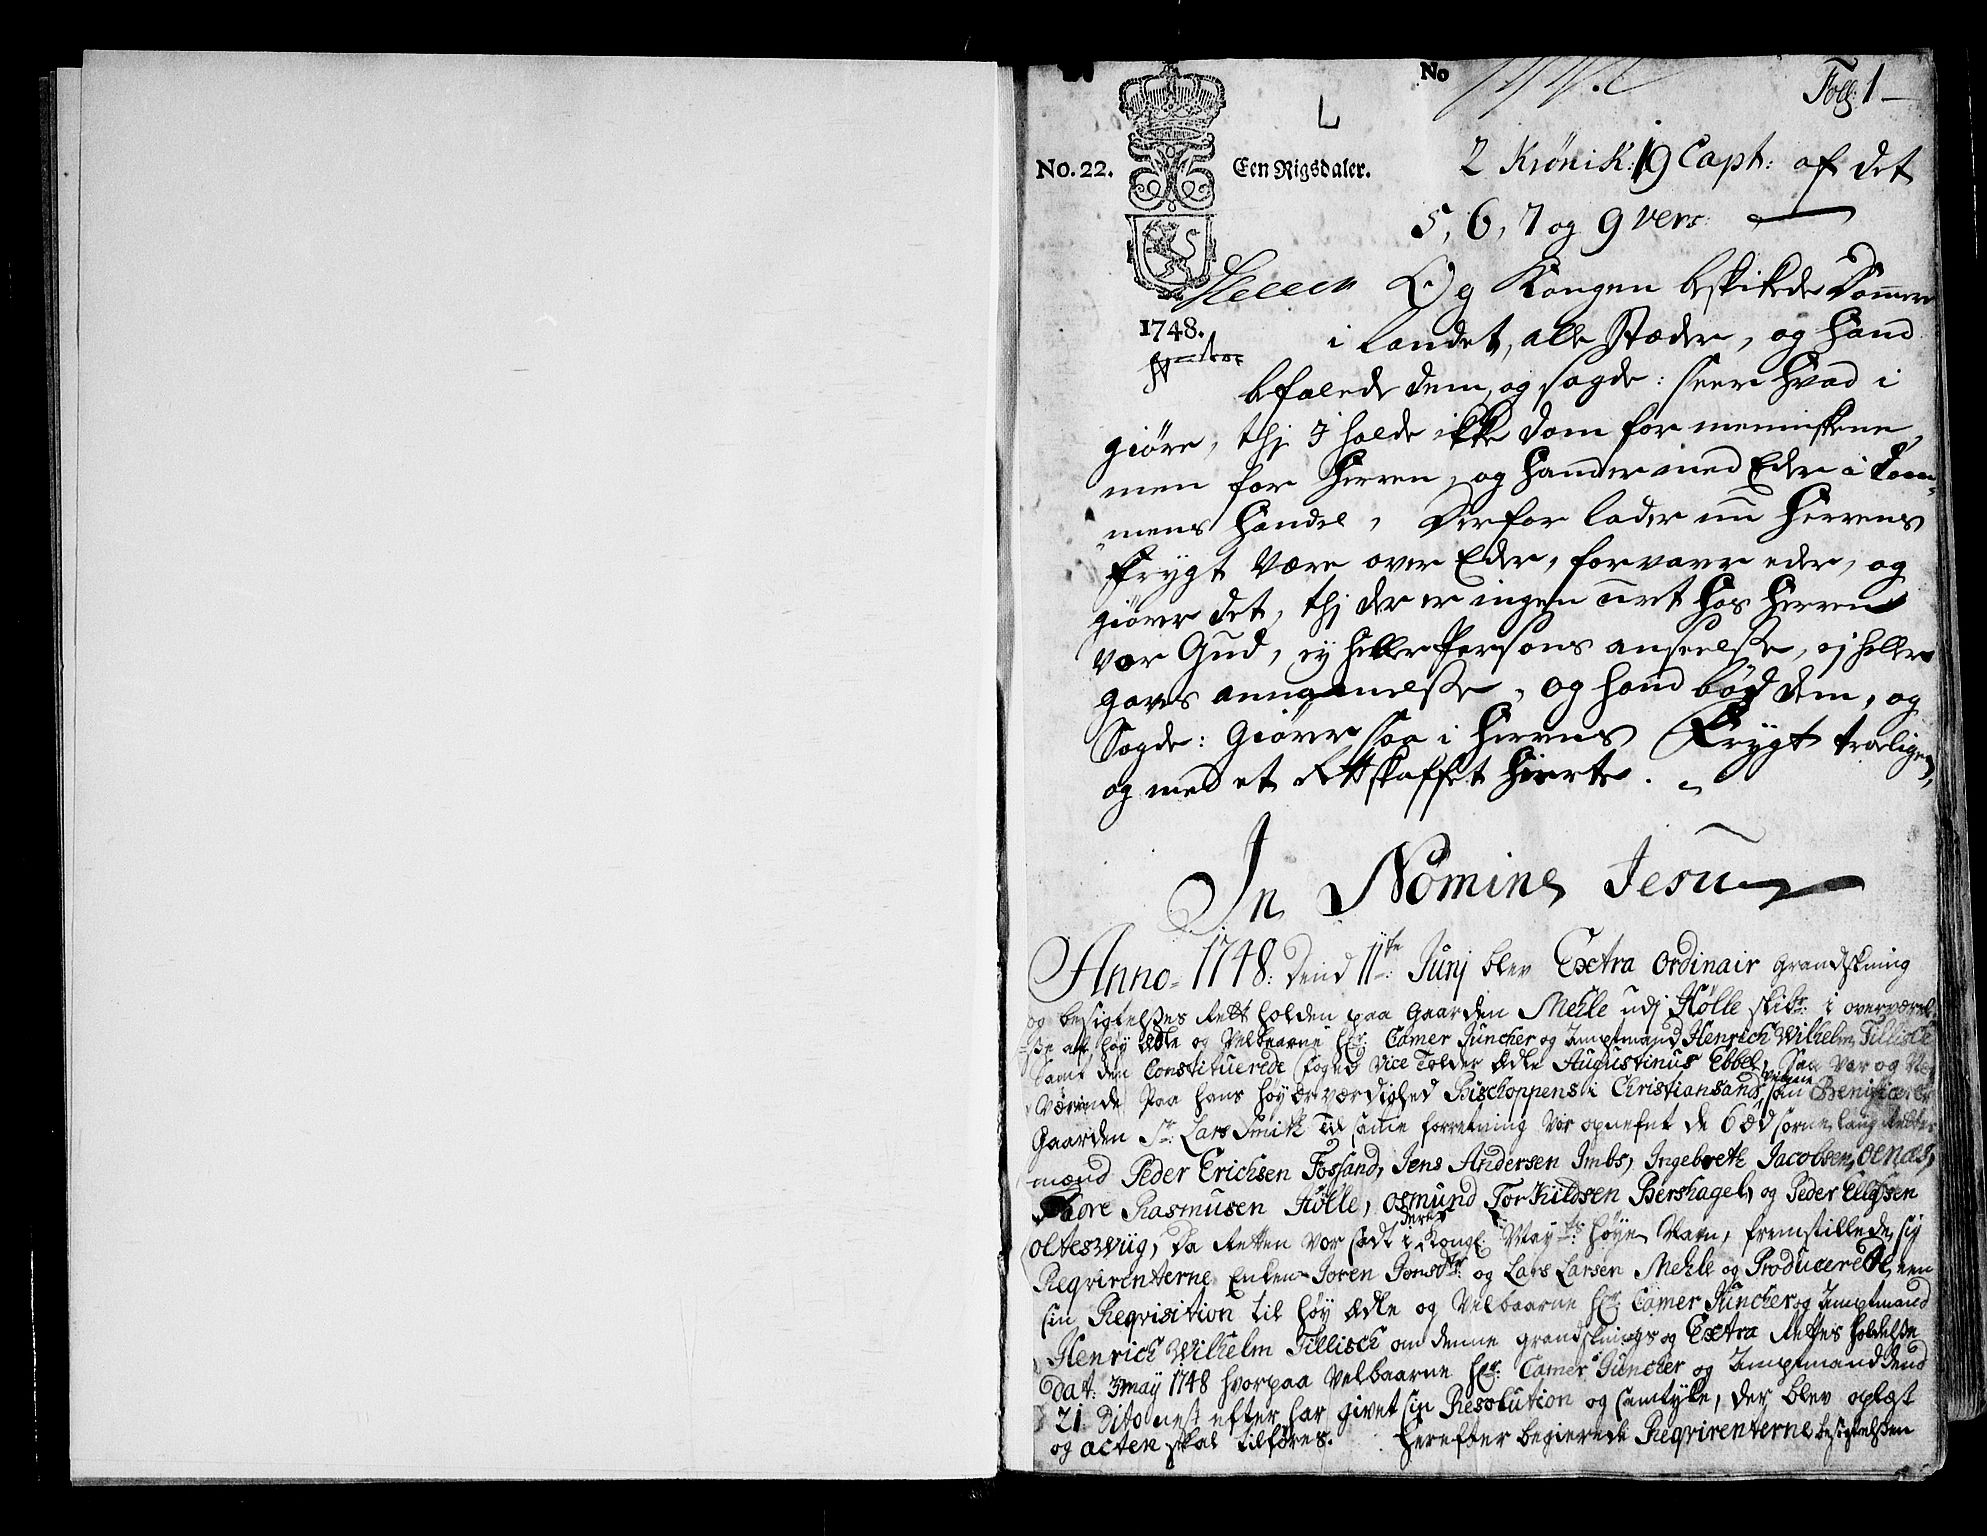 No
Foll: 1
L
No. 22. Een Rigsdaler.
2 Krönik: 19 Capt: af det
5, 6, 7 og 9 vers:
Og Kongen beskikede Dommere
1748.
i Landet, alle Stæder, og hand
befalede dem, og sagde: seer hvad i
giöre, thj I holde ikke dom for menniskene,
men for Herren, og hand er med Eder i Dom-
mens handel, Derfor lader nu Herrens
frygt være over Eder, forvarer eder, og
giörer det, thj der er ingen uret hos Herren
vor Gud, ey heller Persons anseelsse, ej heller
gaves annammelsse, og hand bød dem, og
Sagde: Giörer saa i Herrens Frygt trolig,
og med et Rettskaffet hierte.
In Nomine Jesu
Anno 1748: Dend 11te Junj blev Extra Ordinair grandskning
og besigtelsses Rett holden paa Gaarden Mehle udj Hölle skibr: i overværel-
sse af høy ædle og Velbaarne Hr: Camer Juncher og Amptmand Henrich Wilhelm Tillisch
Samt den Constituerede foged Vice Tolder Ædle Augustinus Ebbel, Saa var og
værende paa hans høyærværdighed Bischoppens i Christiansand, som Benificeret
Gaarden Sr: Lars Smith Til samme forretning var opnefnt de 6 æd sorne laug Rettes
mænd Peder Erichsen Fossand, Jens Andersen Imbs, Ingebreth Jacobsen Oenæs,
Tore Rasmusen Hölle, Osmund Torkildsen Bershagel, og Peder Ellefsen
Olteswiig, da Retten var sadt i Kongl: May:ts høye Navn, fremstillede sig
Reqvirenterne Enken Joren Jonsdtr: og Lars Larsen Mehle og Producerede een
sin Reqvisition til høy ædle og Velbaarne Hr: Camer Juncher og Amptmand
Henrich Wilhelm Tillisch om denne grandsknings og Extra Rettes holdelsse
Dat: 3 may 1748 hvorpaa Velbaarne Hr: Camer Juncher og Amptmand dend
21 Dito nest efter har givet sin Resolution og samtyke, der blev oplæst
og acten skal tilføres. Herefter begierede Reqvirenterne besigtelssen